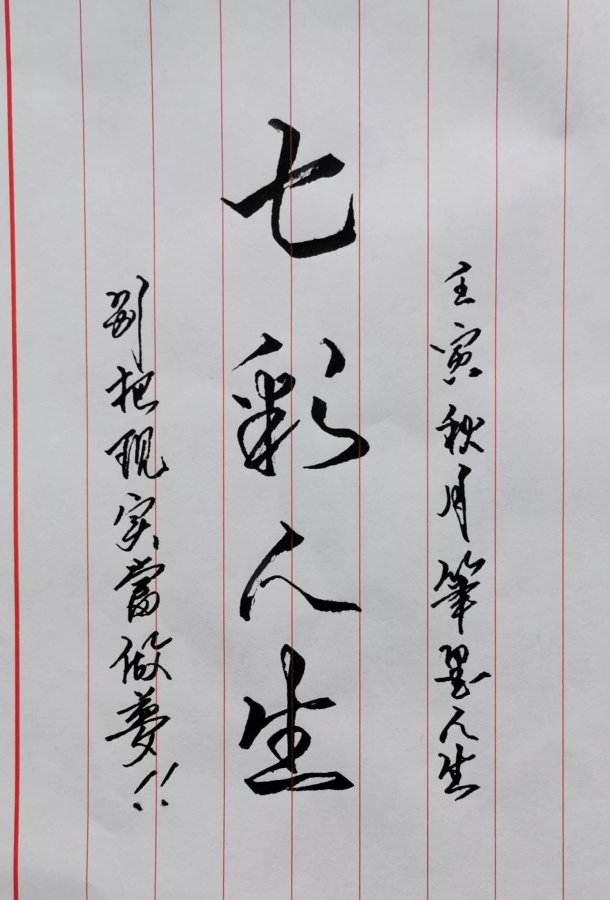 壬寅秋月筆墨人生
七彩人生
别把现实當做夢!!